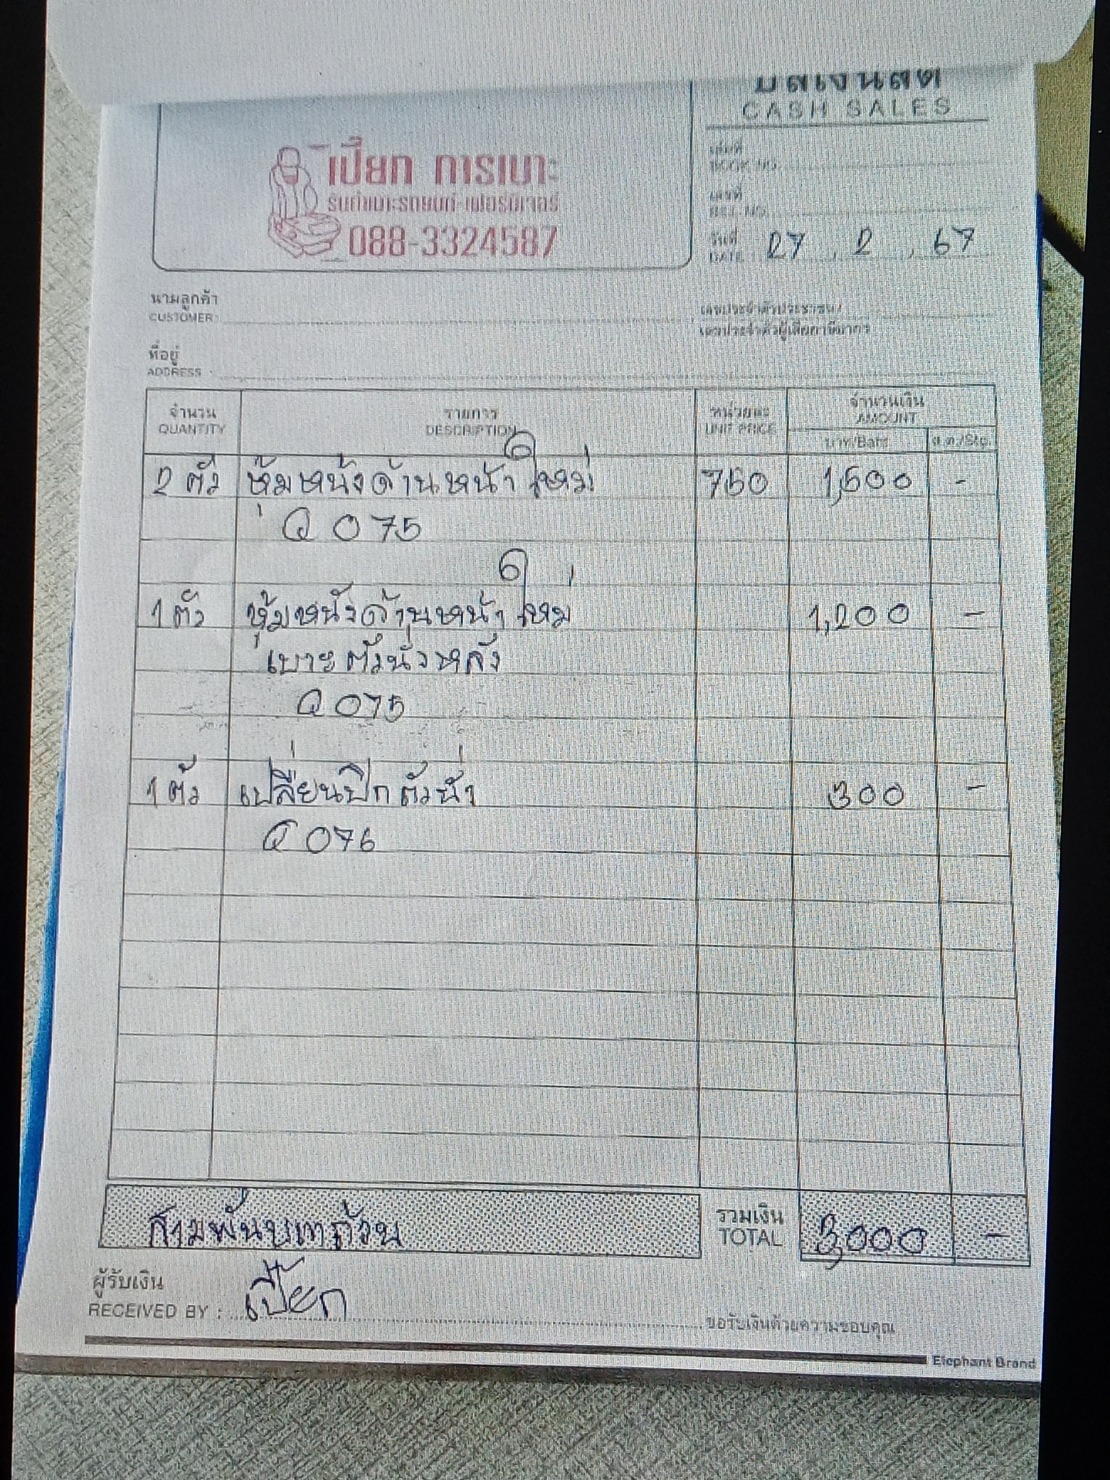 บิลเงินสด
CASH SALES
เปี๊ยก การเบาะ
รับทำเบาะรถยนต์-เฟอร์นิเจอร์
088-3324587
เล่มที่
BOOK NO.
เลขที่
BILL NO.
วันที่
DATE 27 2 67
นามลูกค้า
CUSTOMER
เลขประจำตัวประชาชน/
เลขประจำตัวผู้เสียภาษีอากร
ที่อยู่
ADDRESS
จำนวน รายการ หน่วยละ จำนวนเงิน
QUANTITY DESCRIPTION UNIT PRICE AMOUNT
บาท/Baht ส.ต./Stg.
2 ตัว หุ้มหนังด้านหน้าใหม่ 750 1,500 -
Q 075
1 ตัว หุ้มหนังด้านหน้าใหม่ 1,200 -
เบาะตัวนั่งหลัง
Q 075
1 ตัว เปลี่ยนปีกตัวนั่ง 300 -
Q 076
สามพันบาทถ้วน รวมเงิน TOTAL 3,000 -
ผู้รับเงิน
RECEIVED BY : เปี๊ยก
ขอรับเงินด้วยความขอบคุณ
Elephant Brand